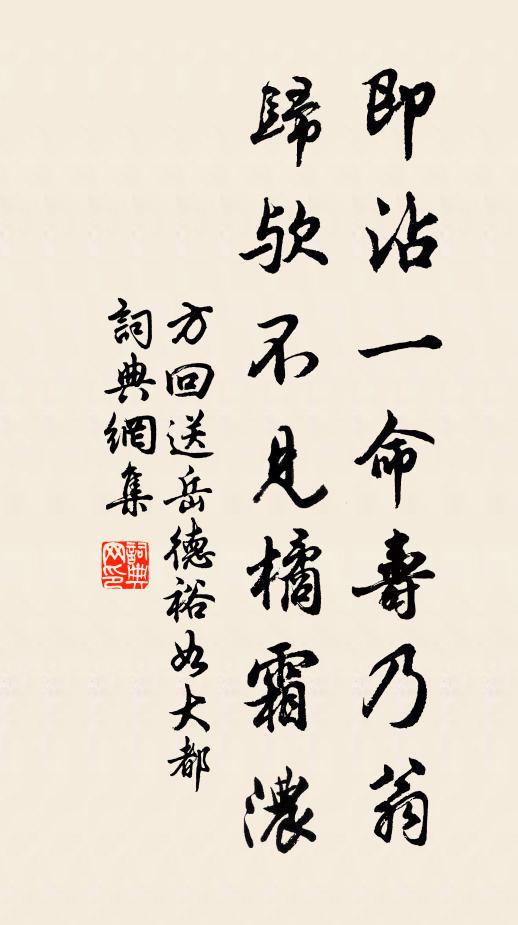 即沾一命壽乃翁
歸歟不見橘霜濃
方回送岳德裕如大都
詞典網集
詞典網印